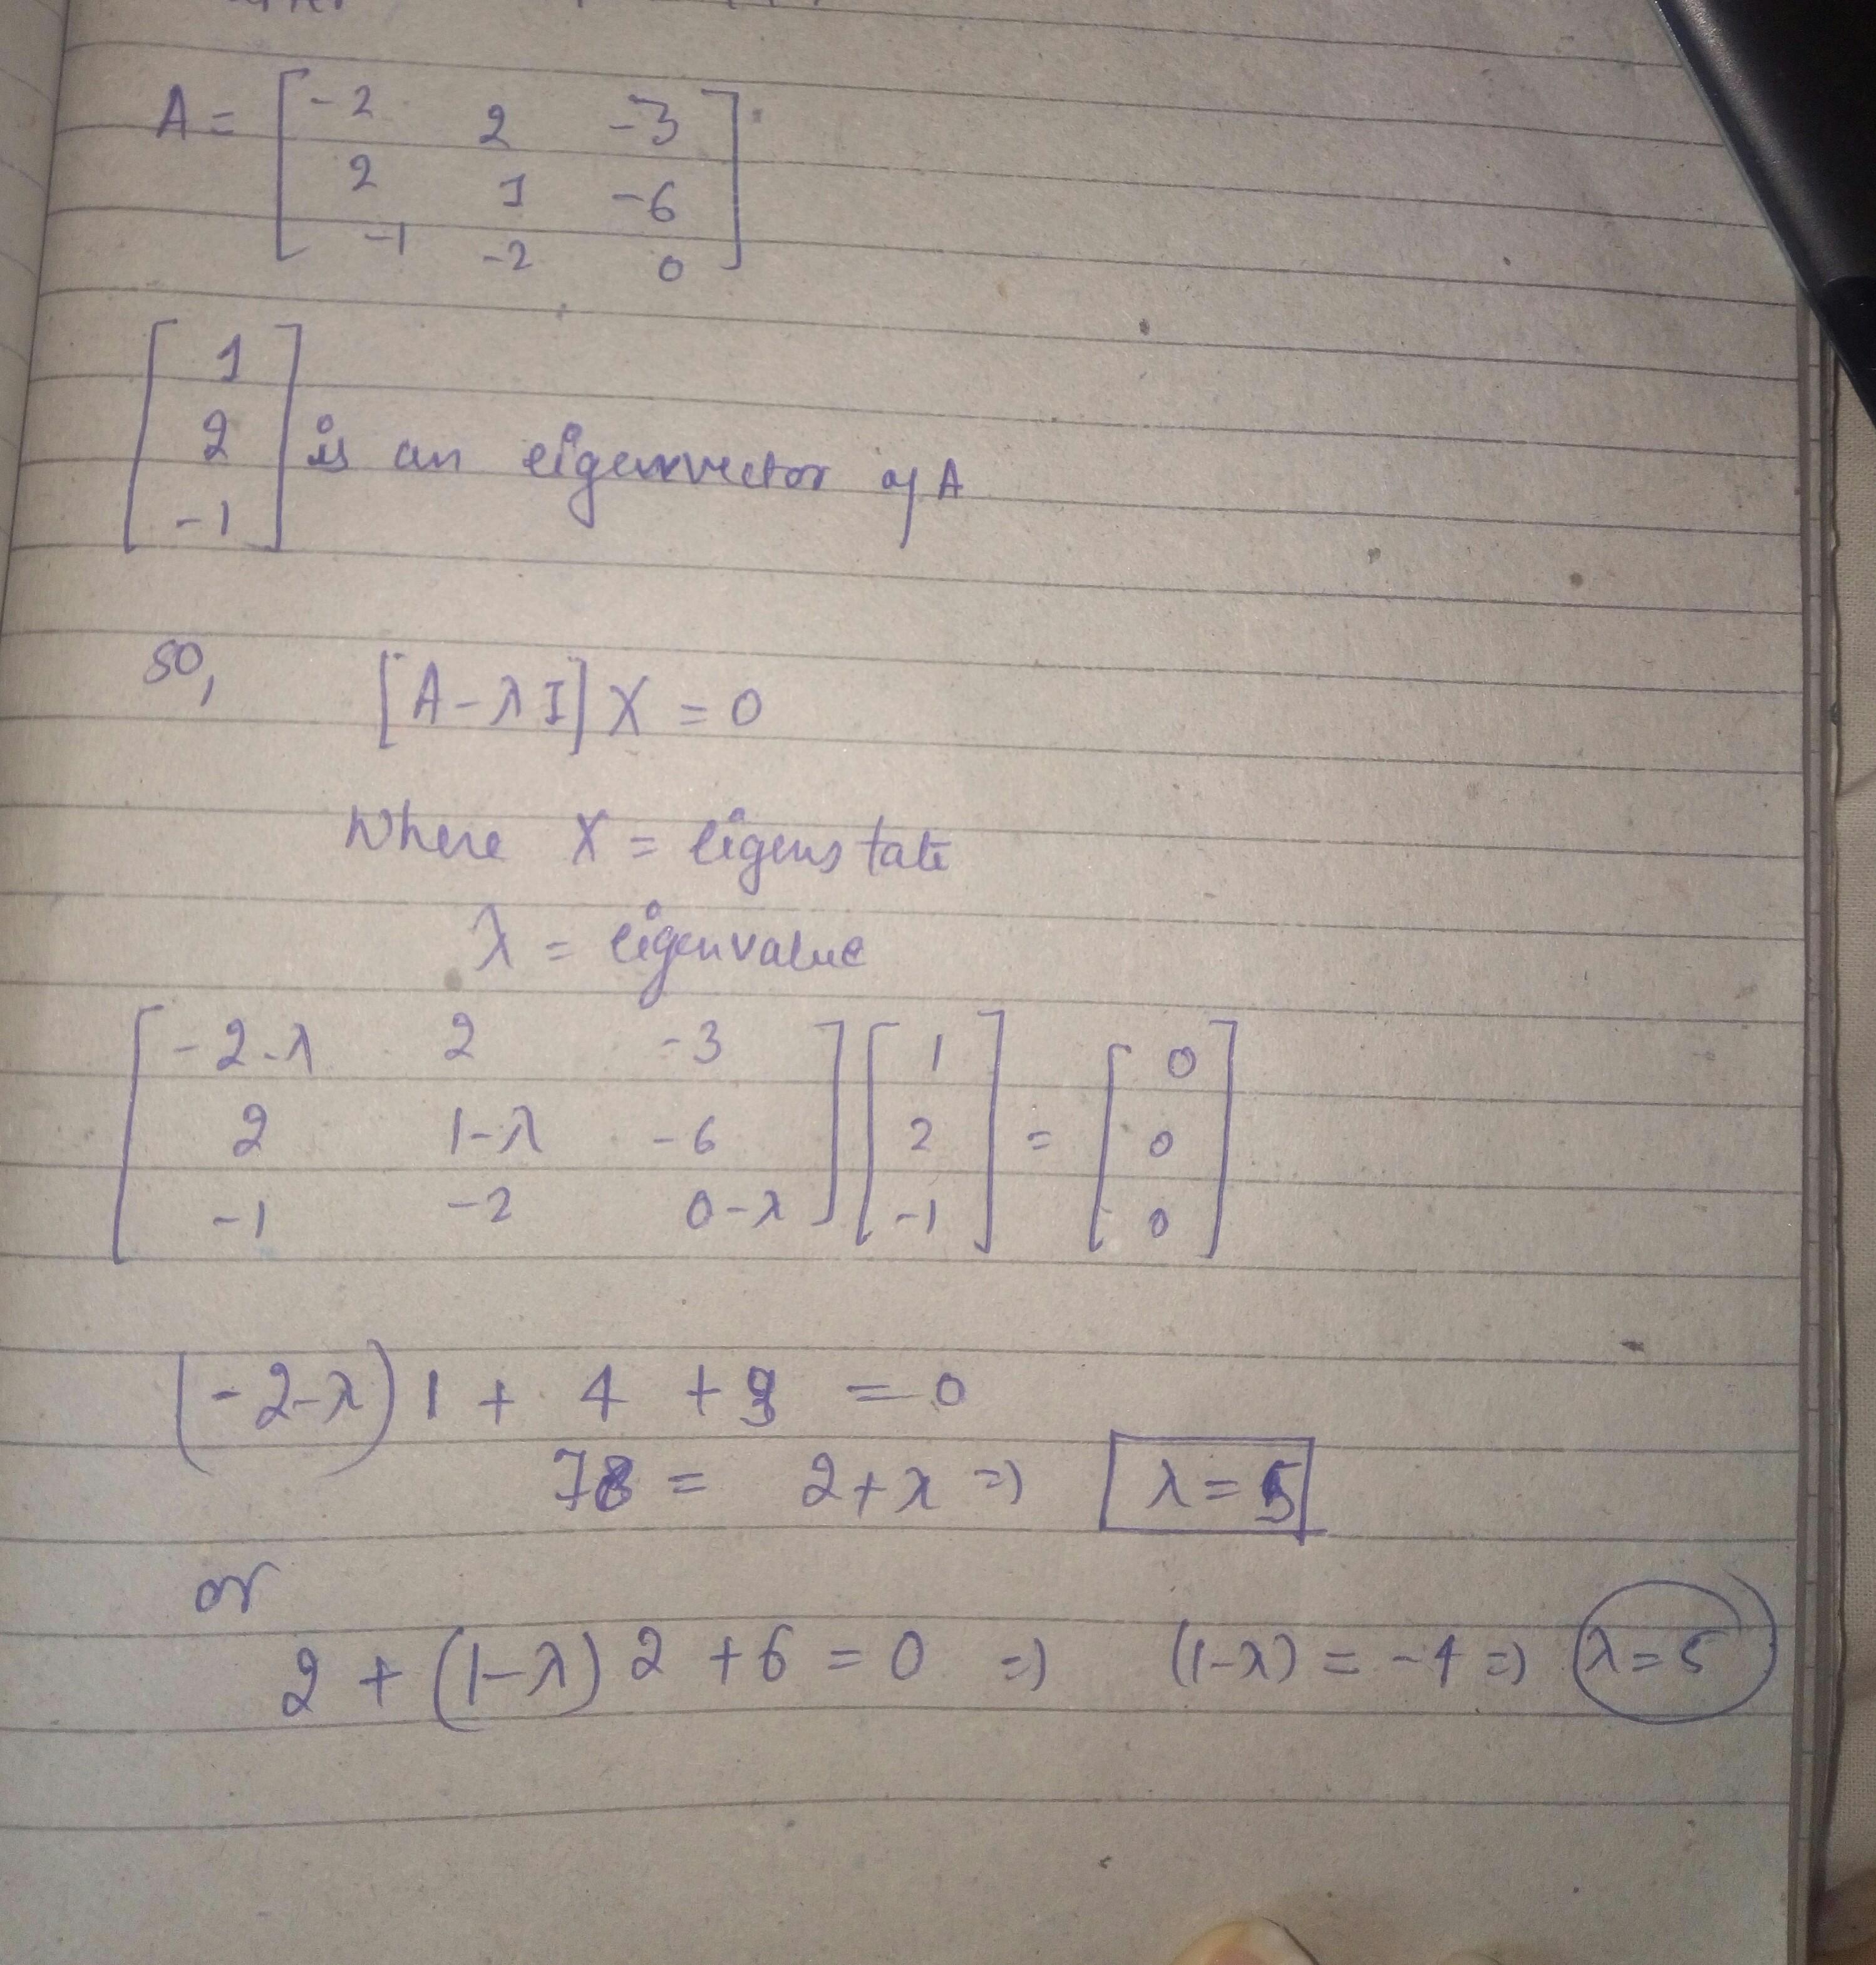 A = [ -2 2 -3
2 1 -6
-1 -2 0 ]
[ 1
2
-1 ] is an eigenvector of A
so, [A - λI] X = 0
Where X = eigenstate
λ = eigenvalue
[ -2-λ 2 -3 ] [ 1 ] = [ 0 ]
[ 2 1-λ -6 ] [ 2 ] [ 0 ]
[ -1 -2 0-λ ] [ -1 ] [ 0 ]
(-2-λ) 1 + 4 + 3 = 0
7 = 2+λ => λ = 5
or
2 + (1-λ) 2 + 6 = 0 => (1-λ) = -4 => λ = 5